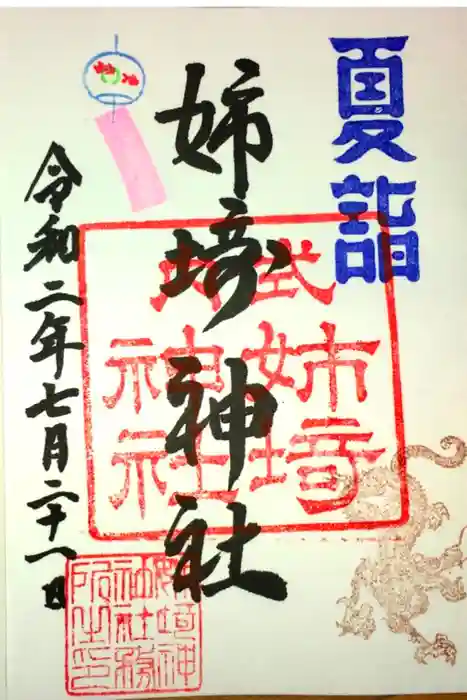 夏詣
姉埼神社
令和二年七月二十一日
式内
姉埼
神社
姉埼神
社務
所之印